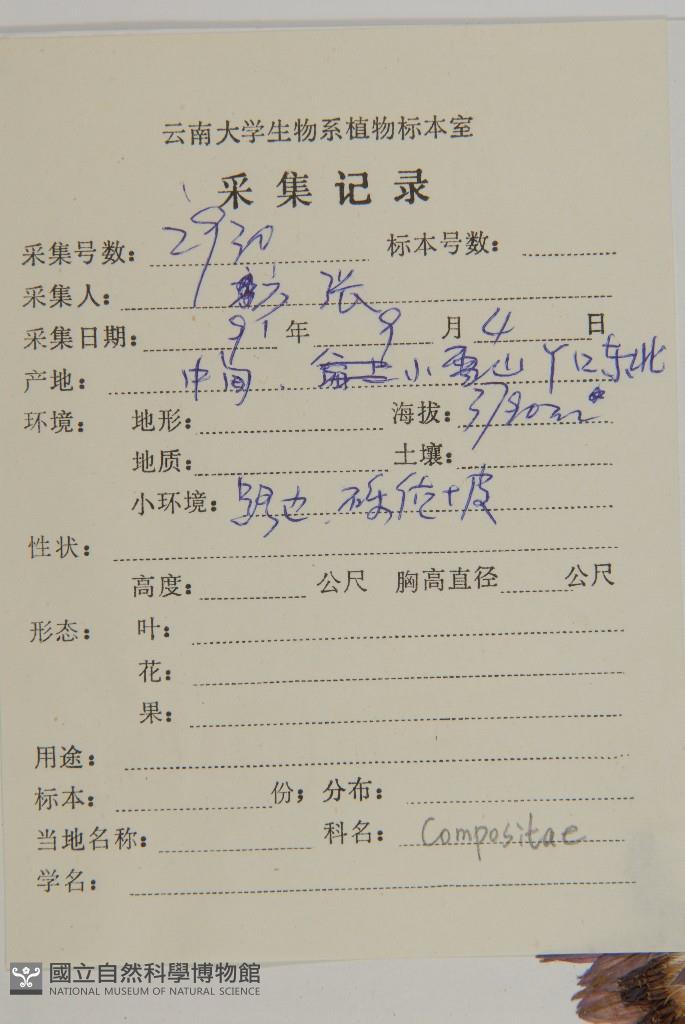 云南大学生物系植物标本室
采集记录
采集号数： 2930 标本号数：
采集人： 张
采集日期： 91 年 9 月 4 日
产地： 中甸、小雪山丫口东北
环境： 地形： 海拔： 3790m
地质： 土壤：
小环境： 路边、砾石坡
性状：
高度： 公尺 胸高直径 公尺
形态： 叶：
花：
果：
用途：
标本： 份； 分布：
当地名称： 科名： Compositae
学名：
國立自然科學博物館
NATIONAL MUSEUM OF NATURAL SCIENCE